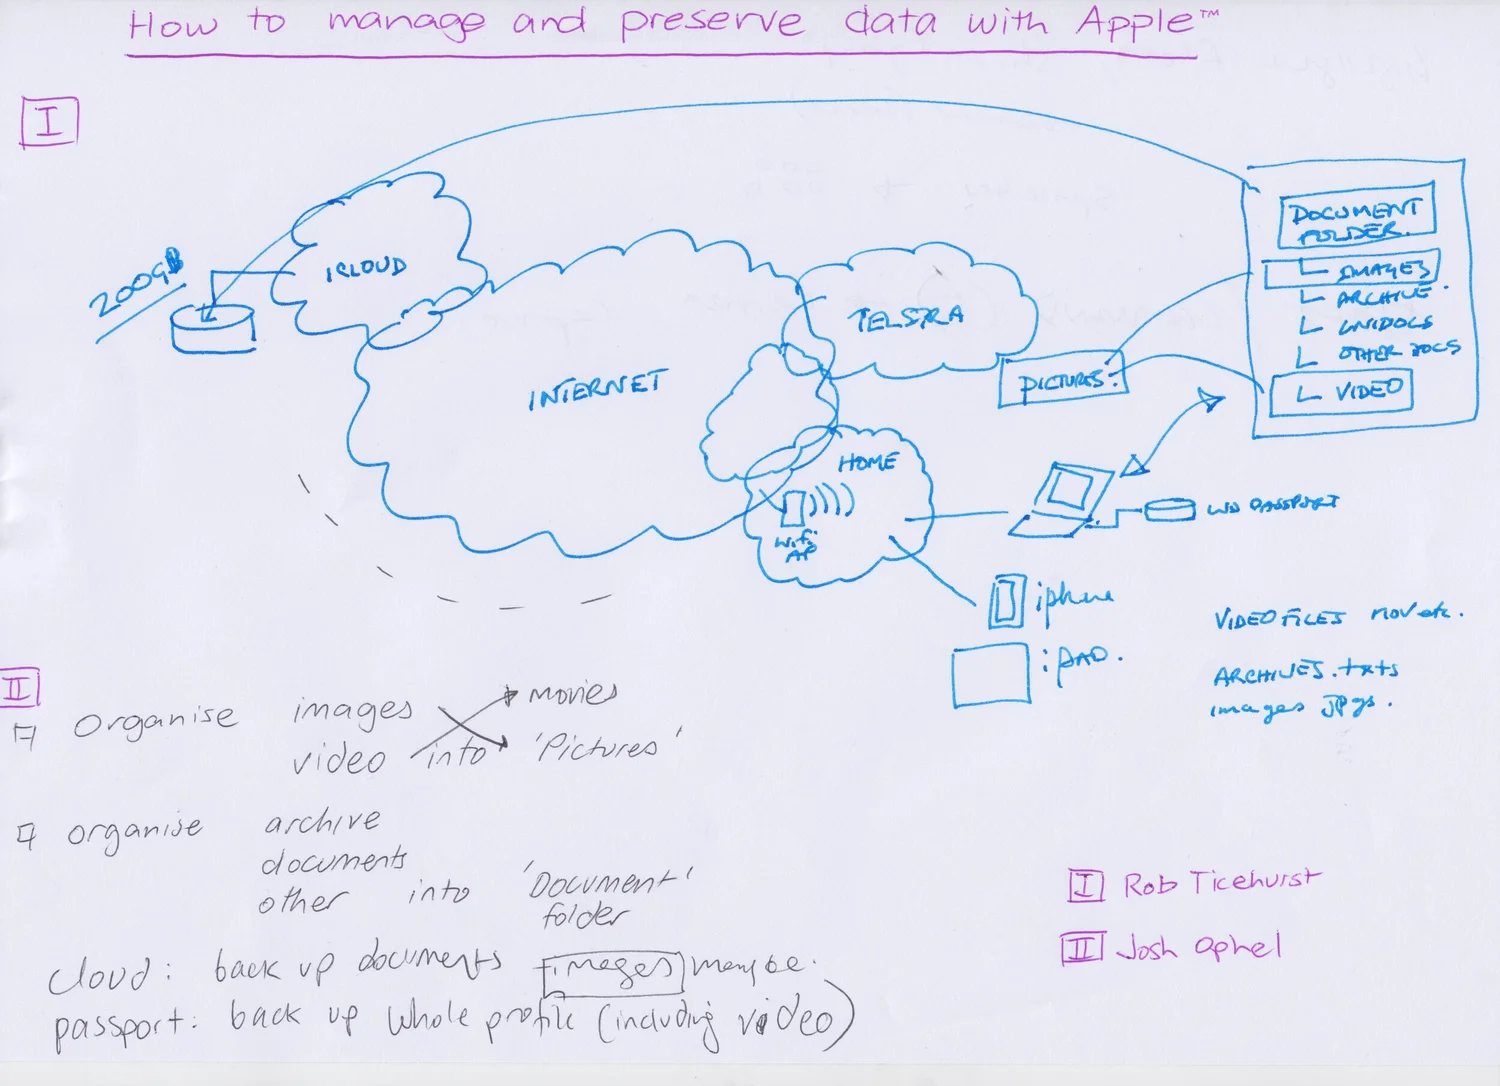 How to manage and preserve data with Apple™
I
200GB
ICLOUD
INTERNET
TELSTRA
PICTURES.
DOCUMENT
FOLDER.
IMAGES
ARCHIVE.
UNIDOCS
OTHER DOCS
VIDEO
HOME
Wifi
AP
WD PASSPORT
iphone
ipAD.
VIDEO FILES MOV etc.
ARCHIVES .txts
images JPgs.
II
Organise images movies
video into 'Pictures'
organise archive
documents
other into 'Document'
folder
cloud: back up documents + images maybe.
passport: back up whole profile (including video)
I Rob Ticehurst
II Josh Ophel